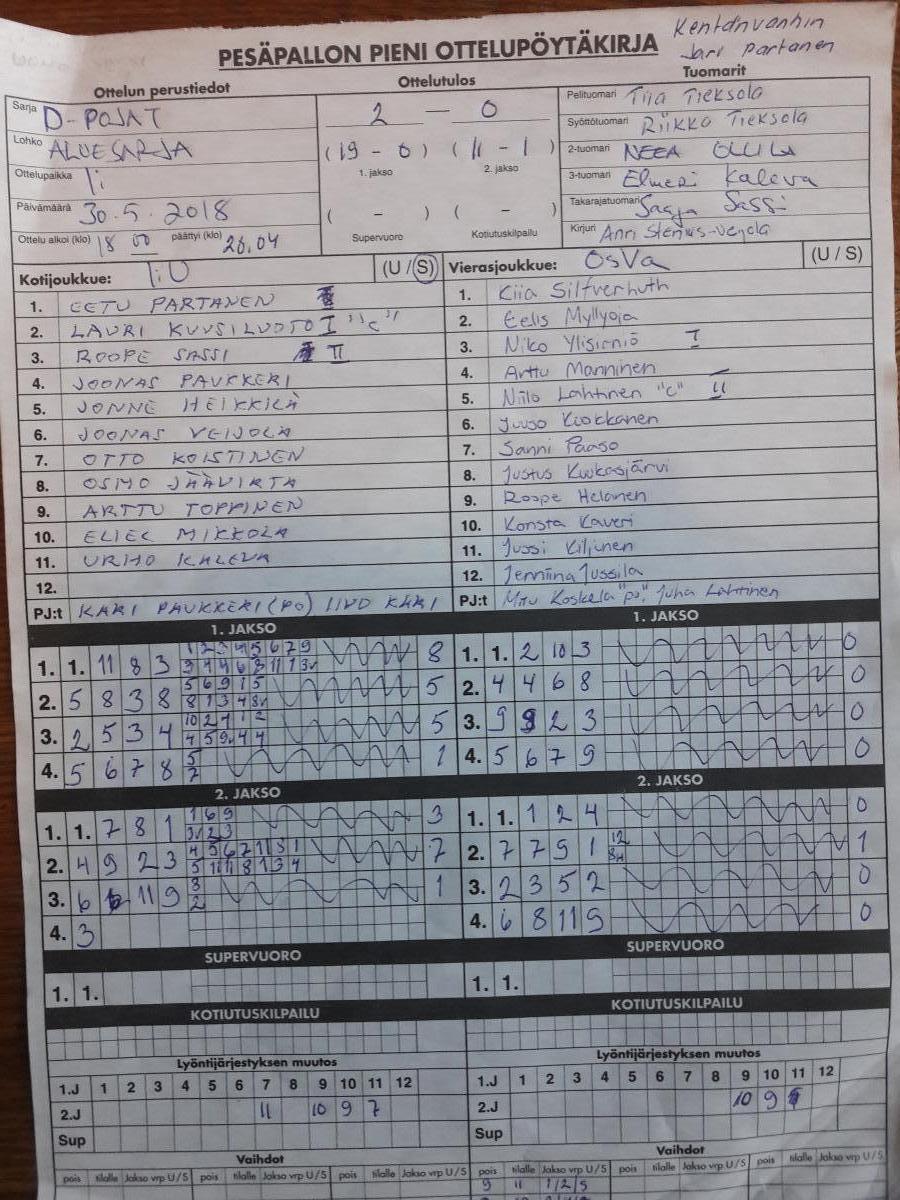 Kentänvanhin
Jari Partanen
PESÄPALLON PIENI OTTELUPÖYTÄKIRJA
Ottelun perustiedot Ottelutulos Tuomarit
Sarja D-POJAT
Lohko ALUESARJA
Ottelupaikka Ii
Päivämäärä 30.5.2018
Ottelu alkoi (klo) 18 00 päättyi (klo) 20.04
2 - 0
(19 - 0) (11 - 1)
1. jakso 2. jakso
( - ) ( - )
Supervuoro Kotiutuskilpailu
Pelituomari Tiia Tieksola
Syöttötuomari Riikka Tieksola
2-tuomari NEEA OLLILA
3-tuomari Elmeri Kaleva
Takarajatuomari Saaja Sassi
Kirjuri Anri Stenius-Veijola
Kotijoukkue: IiU (U / S)
1. EETU PARTANEN
2. LAURI KUUSILUOTO I "C"
3. ROOPE SASSI II
4. JOONAS PAUKKERI
5. JONNE HEIKKILÄ
6. JOONAS VEIJOLA
7. OTTO KOISTINEN
8. OSMO JÄÄVIRTA
9. ARTTU TOPPINEN
10. ELIEL MIKKOLA
11. URHO KALEVA
12.
PJ:t KARI PAUKKERI (PO) IIVO KÄRI
Vierasjoukkue: OsVa (U / S)
1. Kiia Silfverhuth
2. Eelis Myllyoja
3. Niko Ylisirniö I
4. Arttu Manninen
5. Niilo Lahtinen "C" II
6. Juuso Kuokkanen
7. Sanni Paaso
8. Justus Kuukasjärvi
9. Roope Helanen
10. Konsta Kaveri
11. Jussi Kiljunen
12. Jenniina Jussila
PJ:t Miu Koskela "po", Juha Lahtinen
1. JAKSO
1. 1. 11 8 3 8
2. 5 8 3 8 5
3. 2 5 3 4 5
4. 5 6 7 8 5 7 1
2. JAKSO
1. 1. 7 8 1 3
2. 4 9 2 3 7
3. 6 11 9 1
4. 3
SUPERVUORO
1. 1.
KOTIUTUSKILPAILU
1. JAKSO
1. 1. 2 10 3 0
2. 4 4 6 8 0
3. 9 2 3 0
4. 5 6 7 9 0
2. JAKSO
1. 1. 1 2 4 0
2. 7 7 9 1 12 1
3. 2 3 5 2 0
4. 6 8 11 9 0
SUPERVUORO
1. 1.
KOTIUTUSKILPAILU
Lyöntijärjestyksen muutos
1.J 1 2 3 4 5 6 7 8 9 10 11 12
2.J 11 10 9 7
Sup
Vaihdot
pois tilalle Jakso vrp U/S pois tilalle Jakso vrp U/S pois tilalle Jakso vrp U/S
Lyöntijärjestyksen muutos
1.J 1 2 3 4 5 6 7 8 9 10 11 12
2.J 10 9
Sup
Vaihdot
pois tilalle Jakso vrp U/S pois tilalle Jakso vrp U/S pois tilalle Jakso vrp U/S
9 11 1/2/S